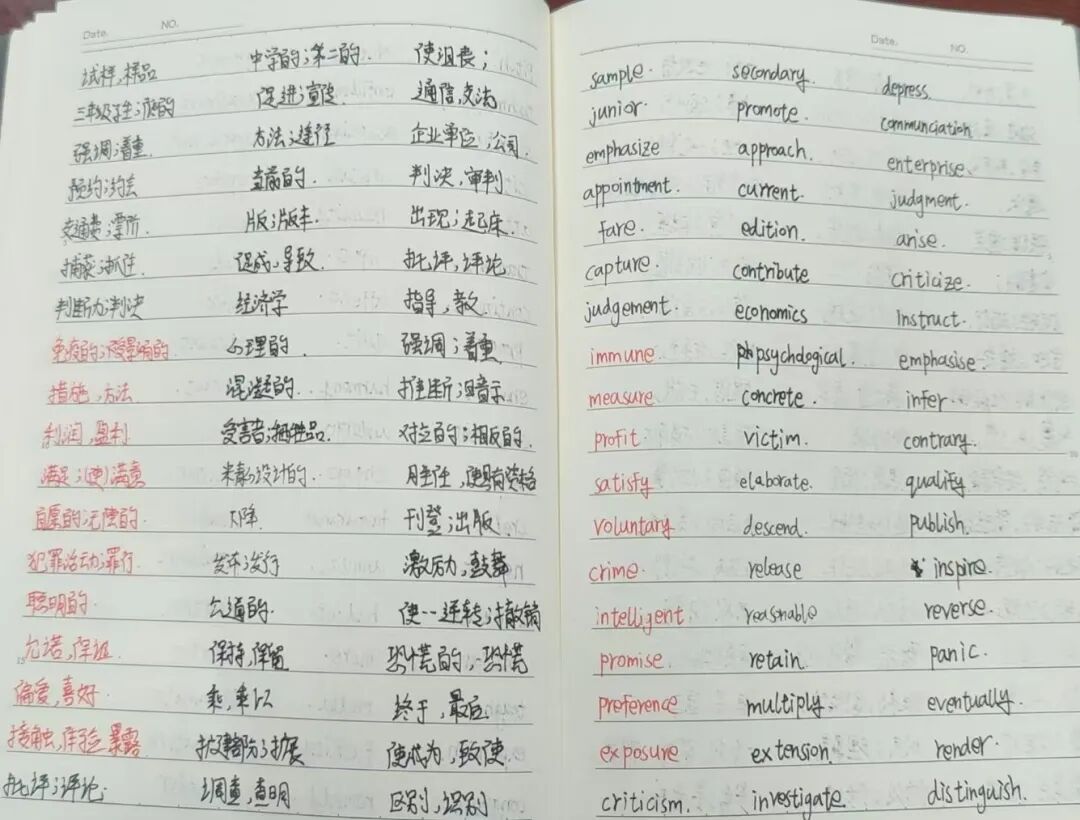 Date. NO.
试样,样品 中学的;第二的. 使沮丧;
三年级学生;级的 促进;宣传. 通信,交流
强调;着重. 方法;途径 企业单位;公司.
预约;约会 当前的. 判决,审判
交通费;票价 版;版本. 出现;起床.
捕获;抓住. 促成,导致 批评,评论
判断力;判决 经济学 指导,教
免疫的;不受影响的. 心理的 强调;着重
措施,方法 混凝土的 推断;暗示
利润,盈利 受害者;牺牲品. 对立的;相反的.
满足;(使)满意 精心设计的. 胜任,使具有资格
自愿的;无偿的. 下降. 刊登;出版.
犯罪活动;罪行. 发布;发行 激励,鼓舞
聪明的. 公道的. 使--逆转;撤销
允诺,保证. 保持,保留 恐慌的,恐慌
偏爱,喜好 乘,乘以 终于,最后
接触,体验,暴露 扩建部分;扩展 使成为,致使.
批评;评论. 调查,查明 区别,识别
Date. NO.
sample. secondary. depress.
junior. promote. communciation
emphasize approach. enterprise.
appointment. current. judgment.
fare. edition. arise.
capture. contribute criticize.
judgement. economics Instruct.
immune psychdogical. emphasise.
measure concrete. infer
profit victim. contrary.
satisfy elaborate. qualify.
voluntary descend. publish.
crime. release inspire.
intelligent reasnable reverse.
promise. retain. panic.
preference multiply. eventually.
exposure extension render.
criticism. investigate. distinguish.